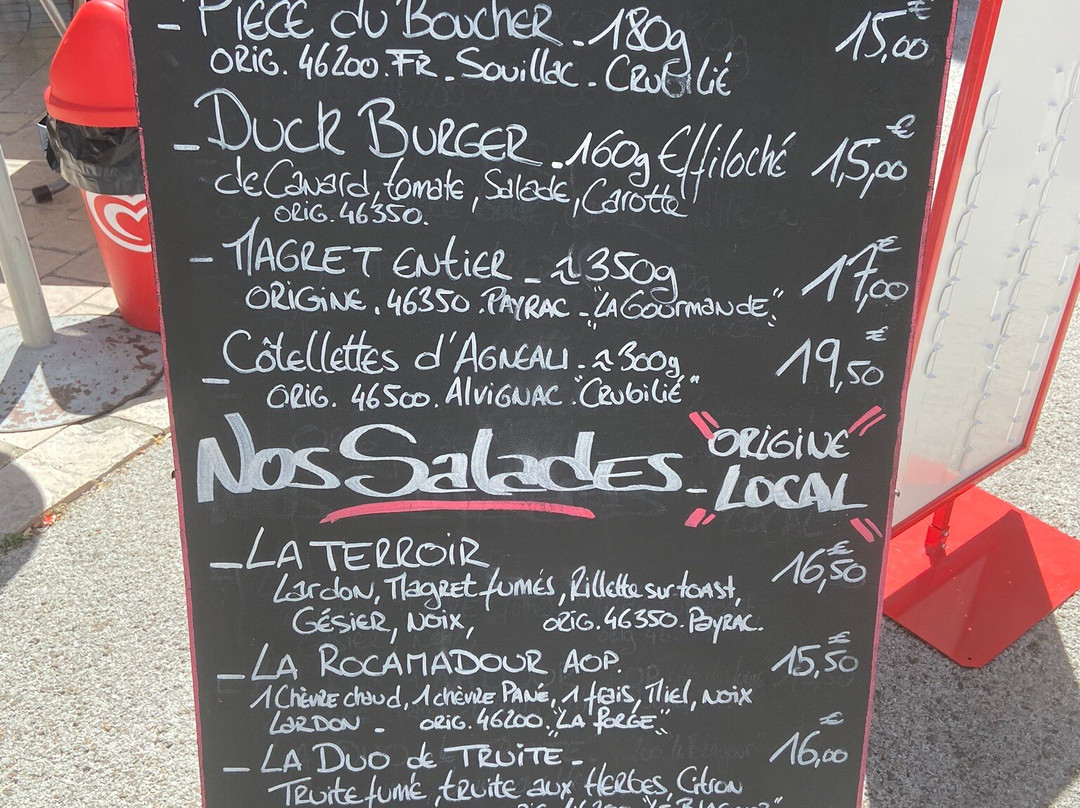 - PIÈCE du BOUCHER - 180g 15,00 €
ORIG. 46200. FR - Souillac - CRUBILIÉ
- DUCK BURGER - 160g Effiloché 15,00 €
de Canard, tomate, Salade, Carotte
ORIG. 46350.
- MAGRET ENTIER - ≈ 350g 17,00 €
ORIGINE. 46350. PAYRAC - "LA Gourmande"
- Côtellettes d'AGNEAU - ≈ 300g 19,50 €
ORIG. 46500. ALVIGNAC "CRUBILIÉ"
Nos Salades - "ORIGINE
LOCAL"
- LA TERROIR 16,50 €
Lardon, Magret fumés, Rillette sur toast,
GÉSIER, NOIX, ORIG. 46350. PAYRAC.
- LA ROCAMADOUR AOP. 15,50 €
1 Chèvre chaud, 1 chèvre PANÉ, 1 frais, Miel, NOIX
LARDON - ORIG. 46200. "LA FORGE"
- LA DUO de TRUITE - 16,00 €
TRUITE fumé, truite aux HERBES, Citron